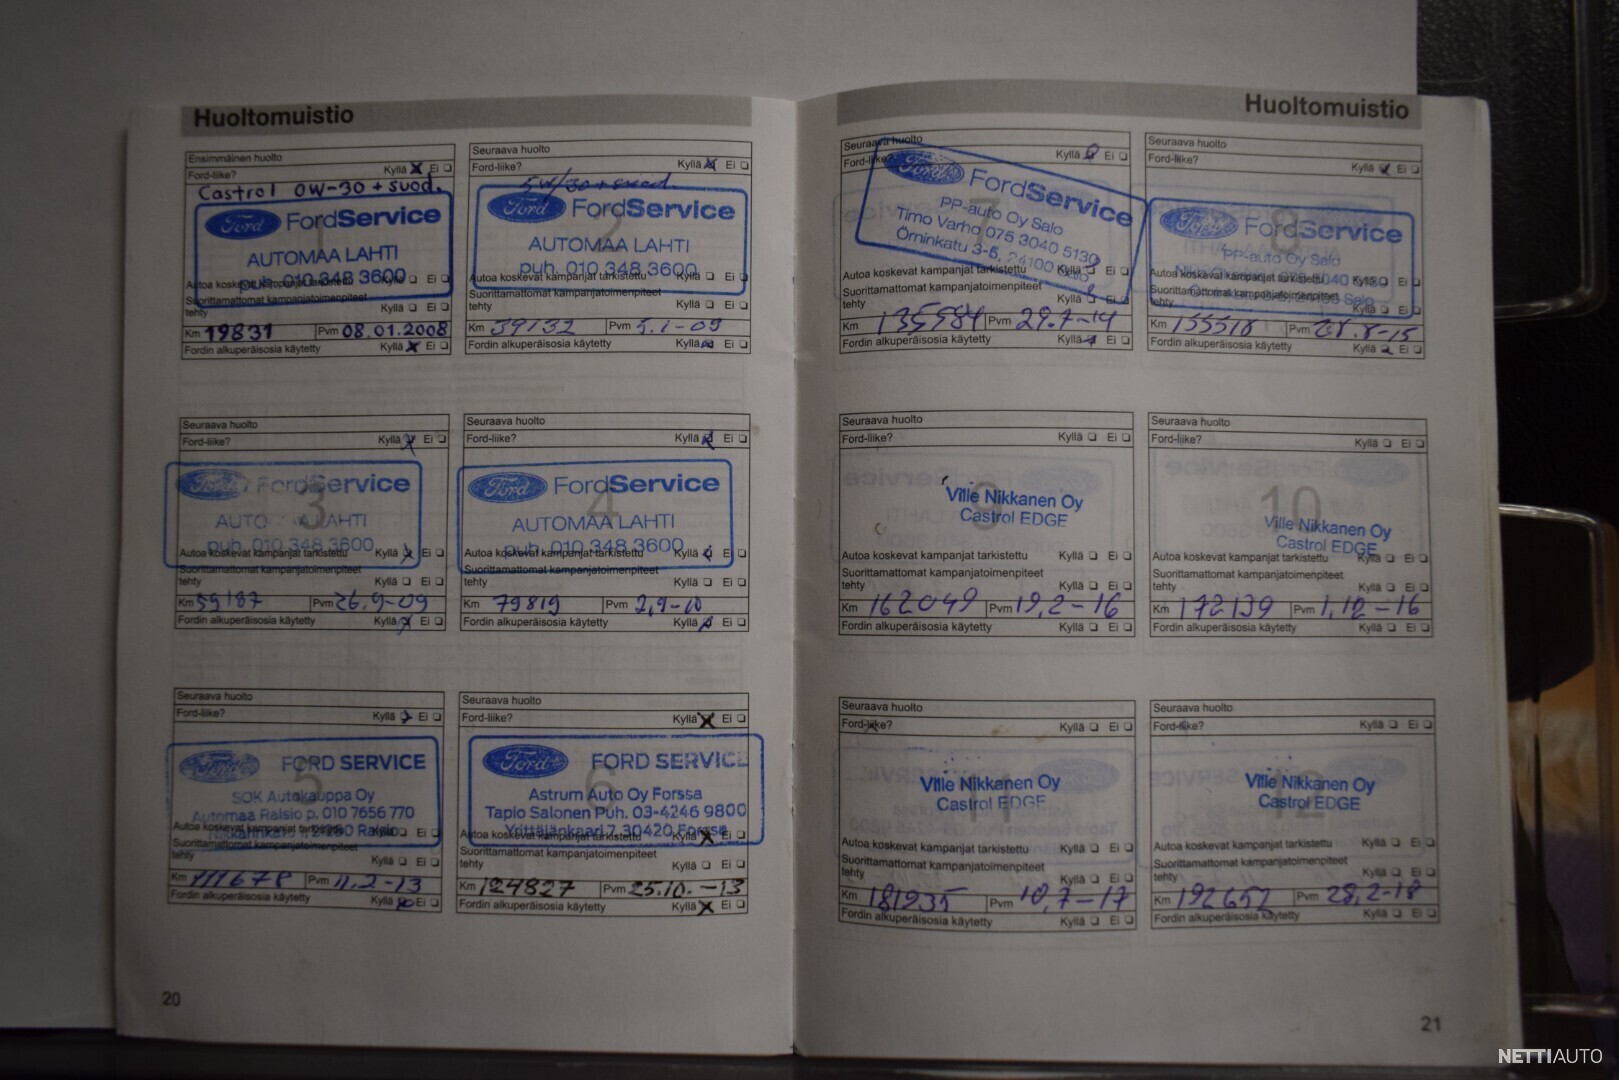 Huoltomuistio
Ensimmäinen huolto
Ford-liike? Kyllä Ei
Castrol 0W-30 + suod.
Ford FordService
AUTOMAA LAHTI
puh. 010 348 3600
Autoa koskevat kampanjat tarkistettu Kyllä Ei
Suorittamattomat kampanjatoimenpiteet
tehty Kyllä Ei
Km 19831 Pvm 08.01.2008
Fordin alkuperäisosia käytetty Kyllä Ei
Seuraava huolto
Ford-liike? Kyllä Ei
5W/30 + suod.
Ford FordService
2
AUTOMAA LAHTI
puh. 010 348 3600
Autoa koskevat kampanjat tarkistettu Kyllä Ei
Suorittamattomat kampanjatoimenpiteet
tehty Kyllä Ei
Km 39132 Pvm 5.1-09
Fordin alkuperäisosia käytetty Kyllä Ei
Seuraava huolto
Ford-liike? Kyllä Ei
Ford FordService
3
AUTOMAA LAHTI
puh. 010 348 3600
Autoa koskevat kampanjat tarkistettu Kyllä Ei
Suorittamattomat kampanjatoimenpiteet
tehty Kyllä Ei
Km 59187 Pvm 26.9-09
Fordin alkuperäisosia käytetty Kyllä Ei
Seuraava huolto
Ford-liike? Kyllä Ei
Ford FordService
4
AUTOMAA LAHTI
puh. 010 348 3600
Autoa koskevat kampanjat tarkistettu Kyllä Ei
Suorittamattomat kampanjatoimenpiteet
tehty Kyllä Ei
Km 79819 Pvm 2,9-10
Fordin alkuperäisosia käytetty Kyllä Ei
Seuraava huolto
Ford-liike? Kyllä Ei
Ford FORD SERVICE
5
SOK Autokauppa Oy
Automaa Raisio p. 010 7656 770
Raisio
Autoa koskevat kampanjat tarkistettu Kyllä Ei
Suorittamattomat kampanjatoimenpiteet
tehty Kyllä Ei
Km 111678 Pvm 11.2-13
Fordin alkuperäisosia käytetty Kyllä Ei
Seuraava huolto
Ford-liike? Kyllä Ei
Ford FORD SERVICE
6
Astrum Auto Oy Forssa
Tapio Salonen Puh. 03-4246 9800
Yrittäjänkaari 7 30420 Forssa
Autoa koskevat kampanjat tarkistettu Kyllä Ei
Suorittamattomat kampanjatoimenpiteet
tehty Kyllä Ei
Km 124827 Pvm 25.10.-13
Fordin alkuperäisosia käytetty Kyllä Ei
20
Huoltomuistio
Seuraava huolto
Ford-liike? Kyllä Ei
Ford FordService
7
PP-auto Oy Salo
Timo Varho 075 3040 5130
Örninkatu 3-5, 24100 Salo
Autoa koskevat kampanjat tarkistettu Kyllä Ei
Suorittamattomat kampanjatoimenpiteet
tehty Kyllä Ei
Km 135984 Pvm 29.7-14
Fordin alkuperäisosia käytetty Kyllä Ei
Seuraava huolto
Ford-liike? Kyllä Ei
Ford FordService
8
PP-auto Oy Salo
Autoa koskevat kampanjat tarkistettu Kyllä Ei
Suorittamattomat kampanjatoimenpiteet
tehty Kyllä Ei
Km Pvm 28.8-15
Fordin alkuperäisosia käytetty Kyllä Ei
Seuraava huolto
Ford-liike? Kyllä Ei
9
Ville Nikkanen Oy
Castrol EDGE
Autoa koskevat kampanjat tarkistettu Kyllä Ei
Suorittamattomat kampanjatoimenpiteet
tehty Kyllä Ei
Km 162049 Pvm 19,2-16
Fordin alkuperäisosia käytetty Kyllä Ei
Seuraava huolto
Ford-liike? Kyllä Ei
10
Ville Nikkanen Oy
Castrol EDGE
Autoa koskevat kampanjat tarkistettu Kyllä Ei
Suorittamattomat kampanjatoimenpiteet
tehty Kyllä Ei
Km 172139 Pvm 1,12-16
Fordin alkuperäisosia käytetty Kyllä Ei
Seuraava huolto
Ford-liike? Kyllä Ei
11
Ville Nikkanen Oy
Castrol EDGE
Autoa koskevat kampanjat tarkistettu Kyllä Ei
Suorittamattomat kampanjatoimenpiteet
tehty Kyllä Ei
Km 181935 Pvm 10,7-17
Fordin alkuperäisosia käytetty Kyllä Ei
Seuraava huolto
Ford-liike? Kyllä Ei
12
Ville Nikkanen Oy
Castrol EDGE
Autoa koskevat kampanjat tarkistettu Kyllä Ei
Suorittamattomat kampanjatoimenpiteet
tehty Kyllä Ei
Km 192652 Pvm 28,2-18
Fordin alkuperäisosia käytetty Kyllä Ei
21
NETTIAUTO